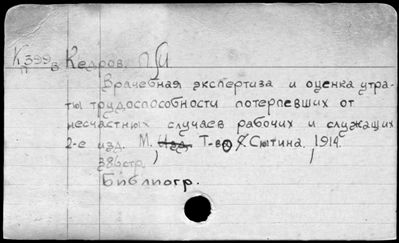 К 399 в Кедров, П И
Врачебная экспертиза и оценка утра-
ты трудоспособности потерпевших от
несчастных случаев рабочих и служащих
2-е изд. М. Изд. Т-во Сытина. 1914.
386 стр.
Библиогр.